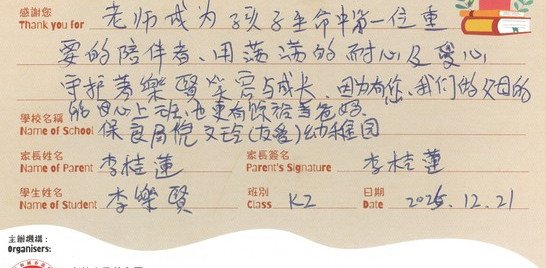 感謝您 老师成为孩子生命中第一位重
Thank you for
要的陪伴者、用满满的耐心及爱心,
守护著樂賢笑容与成长、因为有您、我们做父母的
的安心上班,也更有
學校名稱
Name of School 保良局倪 幼稚园
家長姓名 家長簽名
Name of Parent 李桂蓮 Parent's Signature 李桂蓮
學生姓名 班別 日期
Name of Student 李樂賢 Class K2 Date 2025.12.21
主辦機構:
Organisers: